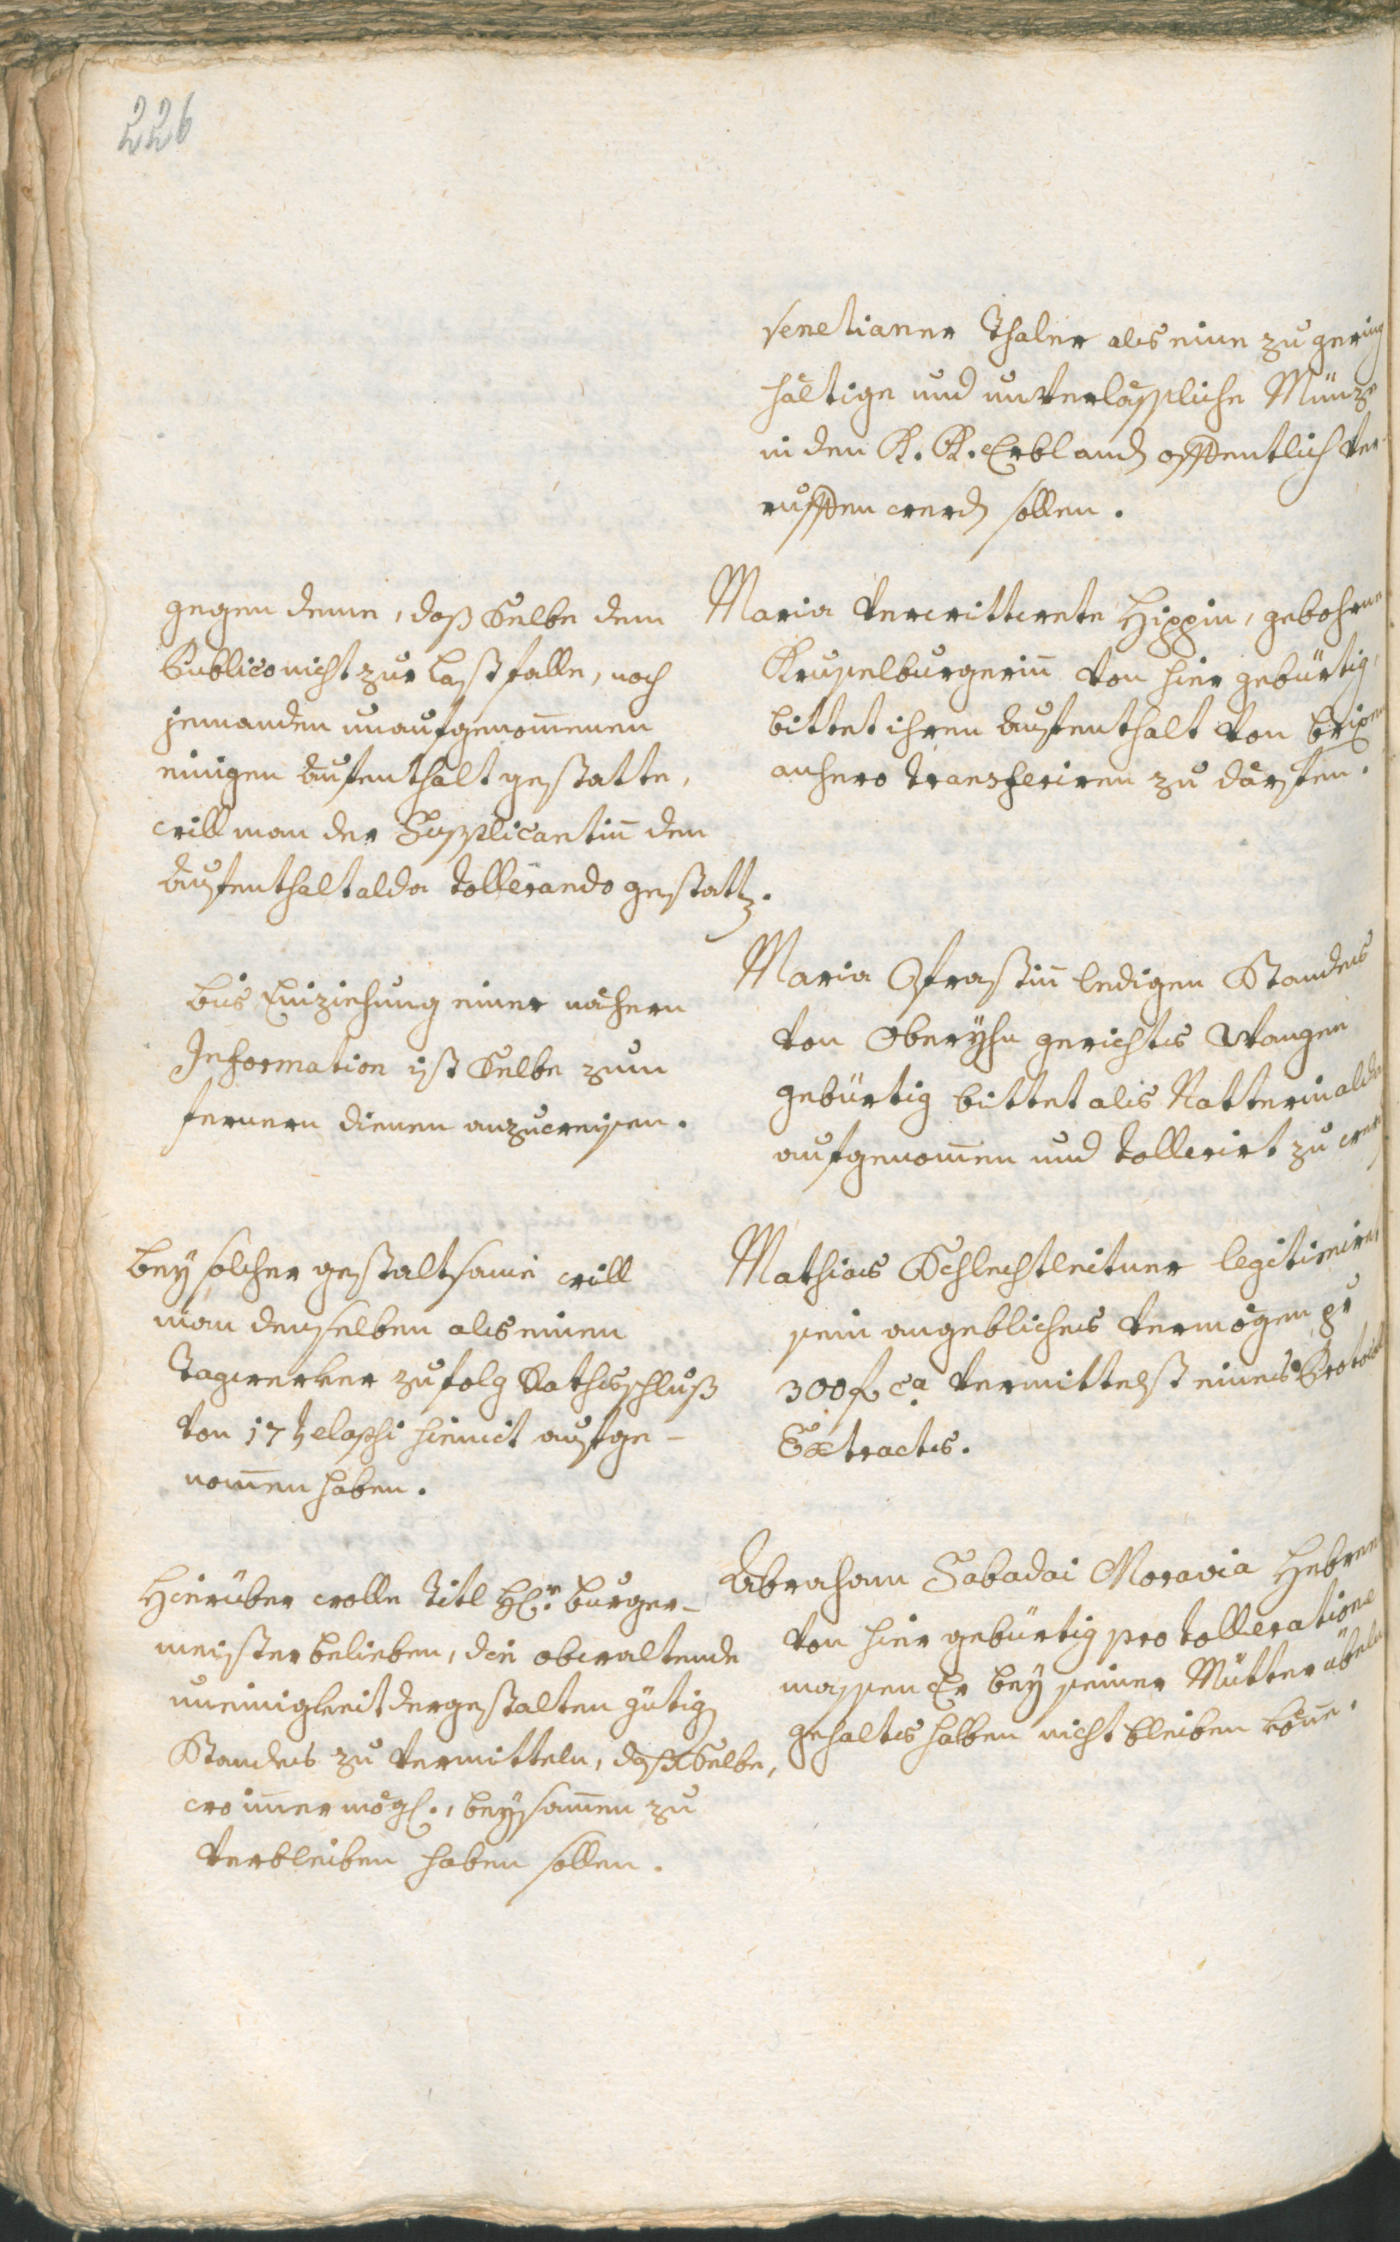 226
venetianer Thaler als eine zu gering
hältige und unverläßliche Münze
in den K. K. Erbland offentlich ver-
ruffen werd sollen.
Maria verwittwete Hippin, gebohrne
Krupelburgerin von hier gebürtig,
bittet ihren Aufenthalt von Brixen
anhero transferiren zu därffen.
gegen deme, daß Selbe dem
Publico nicht zur Last falle, noch
jemanden unaufgenommenen
einigen Aufenthalt gestatte,
will man der Supplicantin den
Aufenthalt alda tollerando gestatt.
Maria Ofrastin ledigen Standes
von Oberyhn gerichts Wangen
gebürtig bittet als Natterin alda
aufgenommen und tollerirt zu
bis Einziehung einer nähern
Information ist Selbe zum
fernern dienen anzuweisen.
Mathias Schlechtleitner legitimirt
sein angebliches vermögen pr
300 f ca vermittelst eines Protocol
Extractes.
bey solcher gestaltsame will
man denselben als einen
Tagwerker zufolg Rathsschluß
von 17 elapsi hiemit aufge-
nommen haben.
Abraham Sabadai Moravia Hebreer
von hier gebürtig pro tolleratione
massen Er bey seiner Mutter übeln
gehaltes halben nicht bleiben könne.
Hierüber wolle Titl H: Burger-
meister belieben, die obwaltende
uneinigkeit dergestalten gütig
Standes zu vermitteln, daß Selbe,
wo immer mögl., beysammen zu
verbleiben haben sollen.